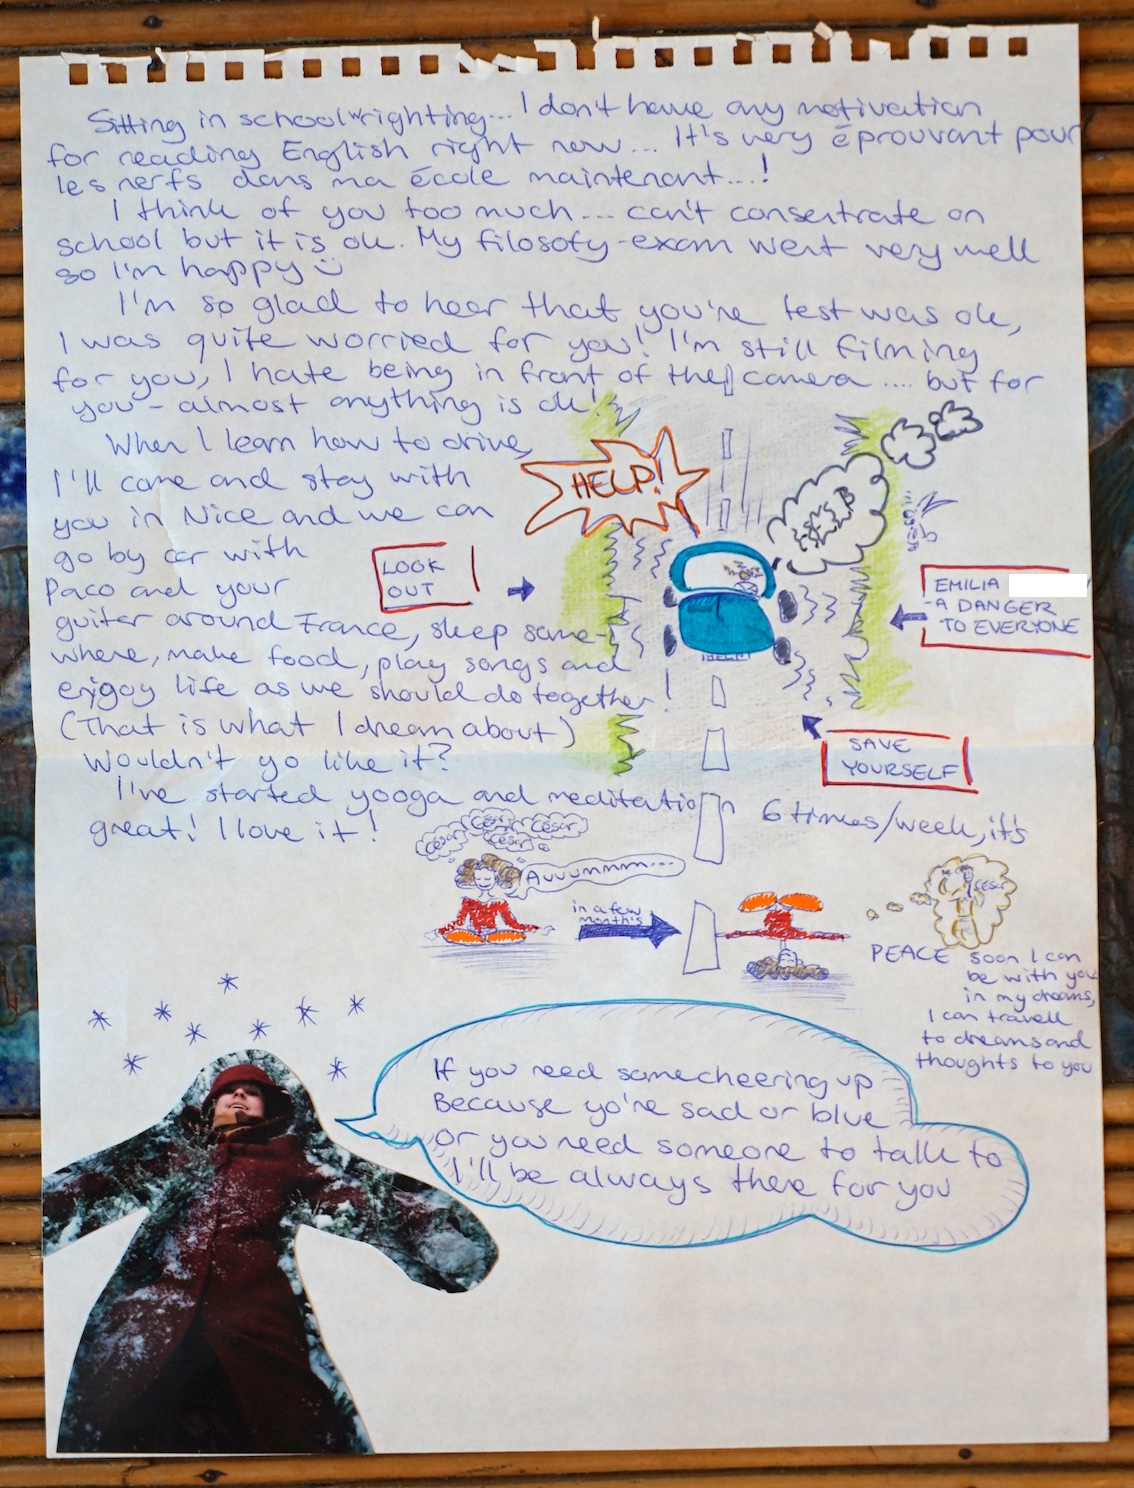 Sitting in school wrighting... I don't have any motivation
for reading English right now... It's very éprouvant pour
les nerfs dans ma école maintenant....!
I think of you too much... can't consertrate on
school but it is ok. My filosofy-exam went very well
so I'm happy
I'm so glad to hear that you're test was ok,
I was quite worried for you! I'm still filming
for you, I hate being in front of the camera .... but for
you - almost anything is ok!
When I learn how to drive,
I'll come and stay with
you in Nice and we can
go by car with
Paco and your
guiter around France, sleep some-
where, make food, play songs and
enjgoy life as we should do together!
(That is what I dream about)
Wouldn't yo like it?
HELP!
LOOK
OUT
EMILIA
- A DANGER
TO EVERYONE
SAVE
YOURSELF
I've started yooga and meditation 6 times/week, it's
great! I love it!
César César César
César César
Auuummm...
in a few
month's
César
PEACE soon I can
be with you
in my dreams,
I can travell
to dreams and
thoughts to you
If you need some cheering up
Because yo're sad or blue
or you need someone to talk to
I'll be always there for you